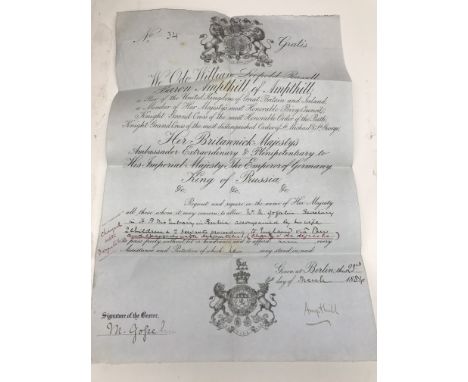 No 34 Gratis
We Odo William Leopold Russell
Baron Ampthill of Ampthill,
a Peer of the United Kingdom of Great Britain and Ireland,
a Member of Her Majesty's most Honorable Privy Council,
Knight Grand Cross of the most Honorable Order of the Bath,
Knight Grand Cross of the most distinguished Order of St. Michael & St. George,
Her Britannick Majesty's
Ambassador Extraordinary & Plenipotentiary to
His Imperial Majesty The Emperor of Germany
King of Prussia
&c &c &c
Request and require in the name of Her Majesty
all those whom it may concern to allow Secretary
to Embassy in Berlin accompanied by his wife
2 children & 2 servants proceeding to England
with
pass freely without let or hindrance and to afford every
Assistance and Protection of which may stand in need
Given at Berlin this 23rd
day of March 1884
Ampthill
Signature of the Bearer.